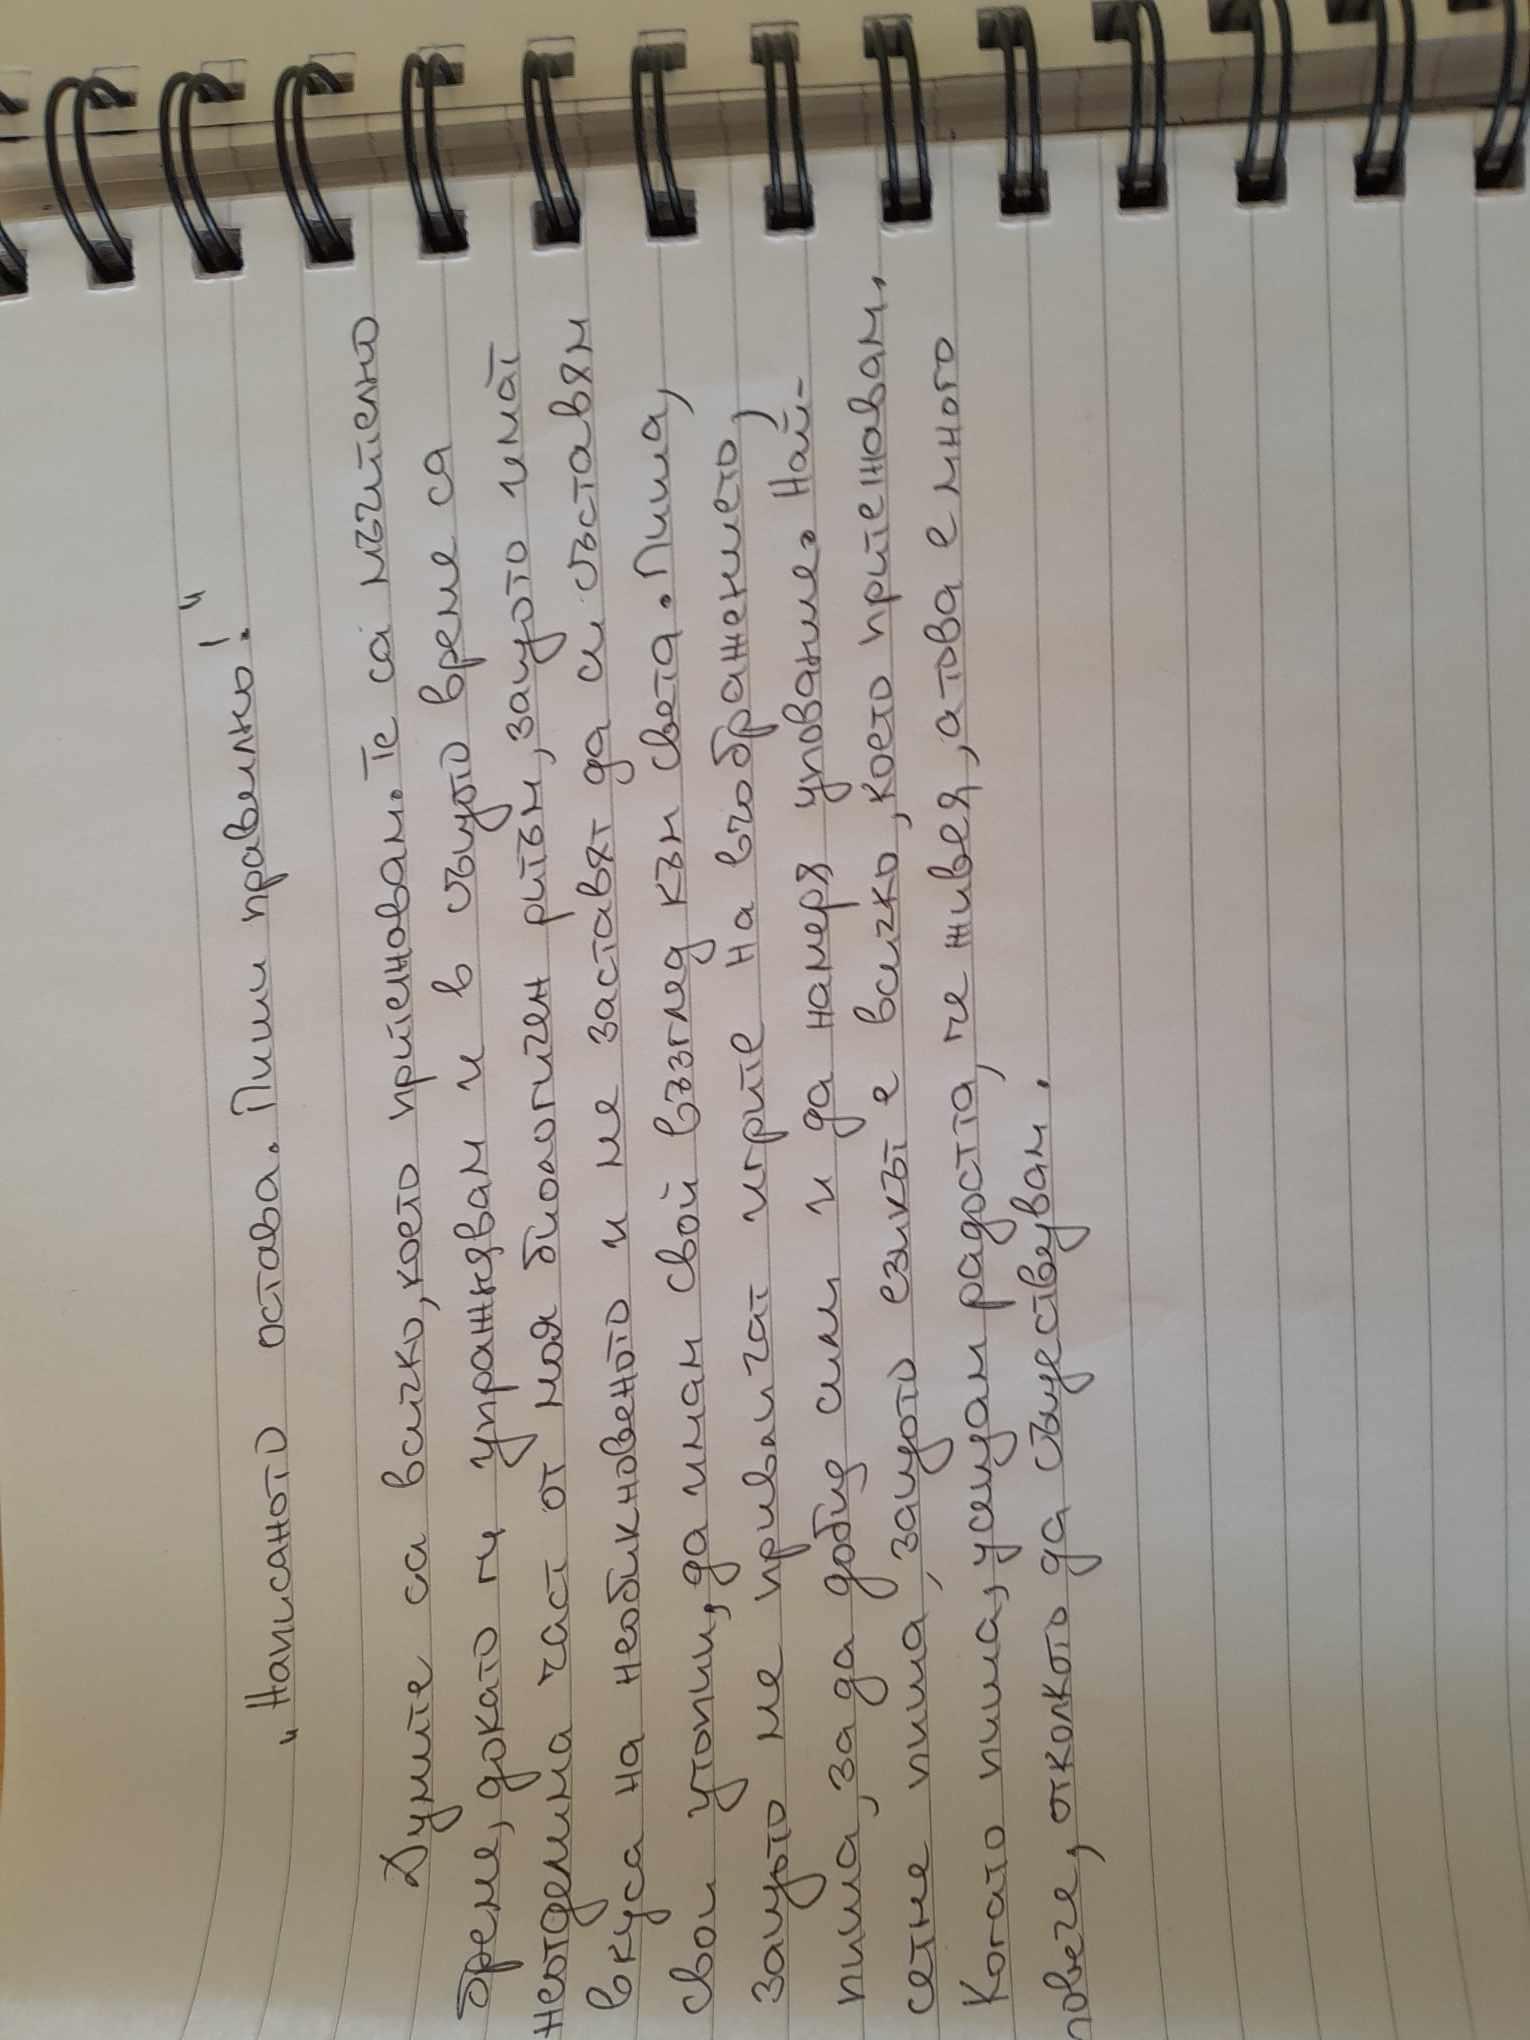 „Написаното остава. Пиши правилно!"
Думите са всичко, което притежавам. Те са мъчително
бреме, докато ги упражнявам и в същото време са
неотделима част от моя биологичен ритъм, защото имат
вкуса на необикновеното и ме заставят да си съставям
свои утопии, да имам свой възглед към света. Пиша,
защото ме привличат игрите на въображението,
пиша, за да добия сили и да намеря упование. Най-
сетне пиша, защото езикът е всичко, което притежавам.
Когато пиша, усещам радостта, че живея, а това е много
повече, отколкото да съществувам.